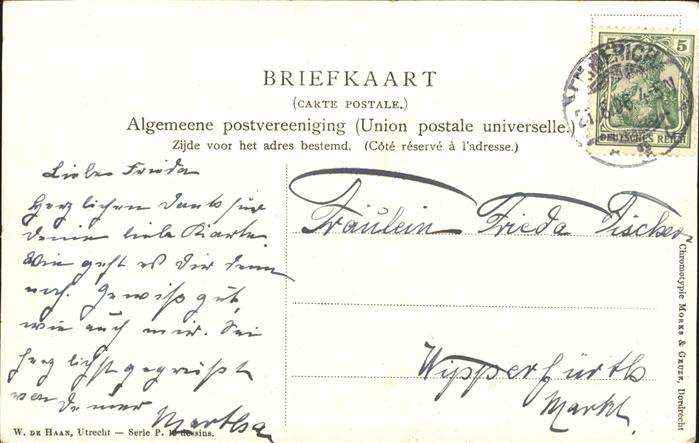 BRIEFKAART
(CARTE POSTALE.)
Algemeene postvereeniging (Union postale universelle.)
Zijde voor het adres bestemd. (Côté réservé à l'adresse.)
5 5
DEUTSCHES REICH
EMMERICH
Liebe Frieda
Herzlichen Dank für
deine liebe Karte.
Wie geht es Dir denn
noch. Gewiß gut,
wie auch mir. Sei
herzlichst gegrüßt
von Deiner
Martha
Fräulein Frieda Fischer
Wipperfürth
Markt.
W. DE HAAN, Utrecht — Serie P. 12 dessins.
Chromotypie MORKS & GEUZE, Dordrecht